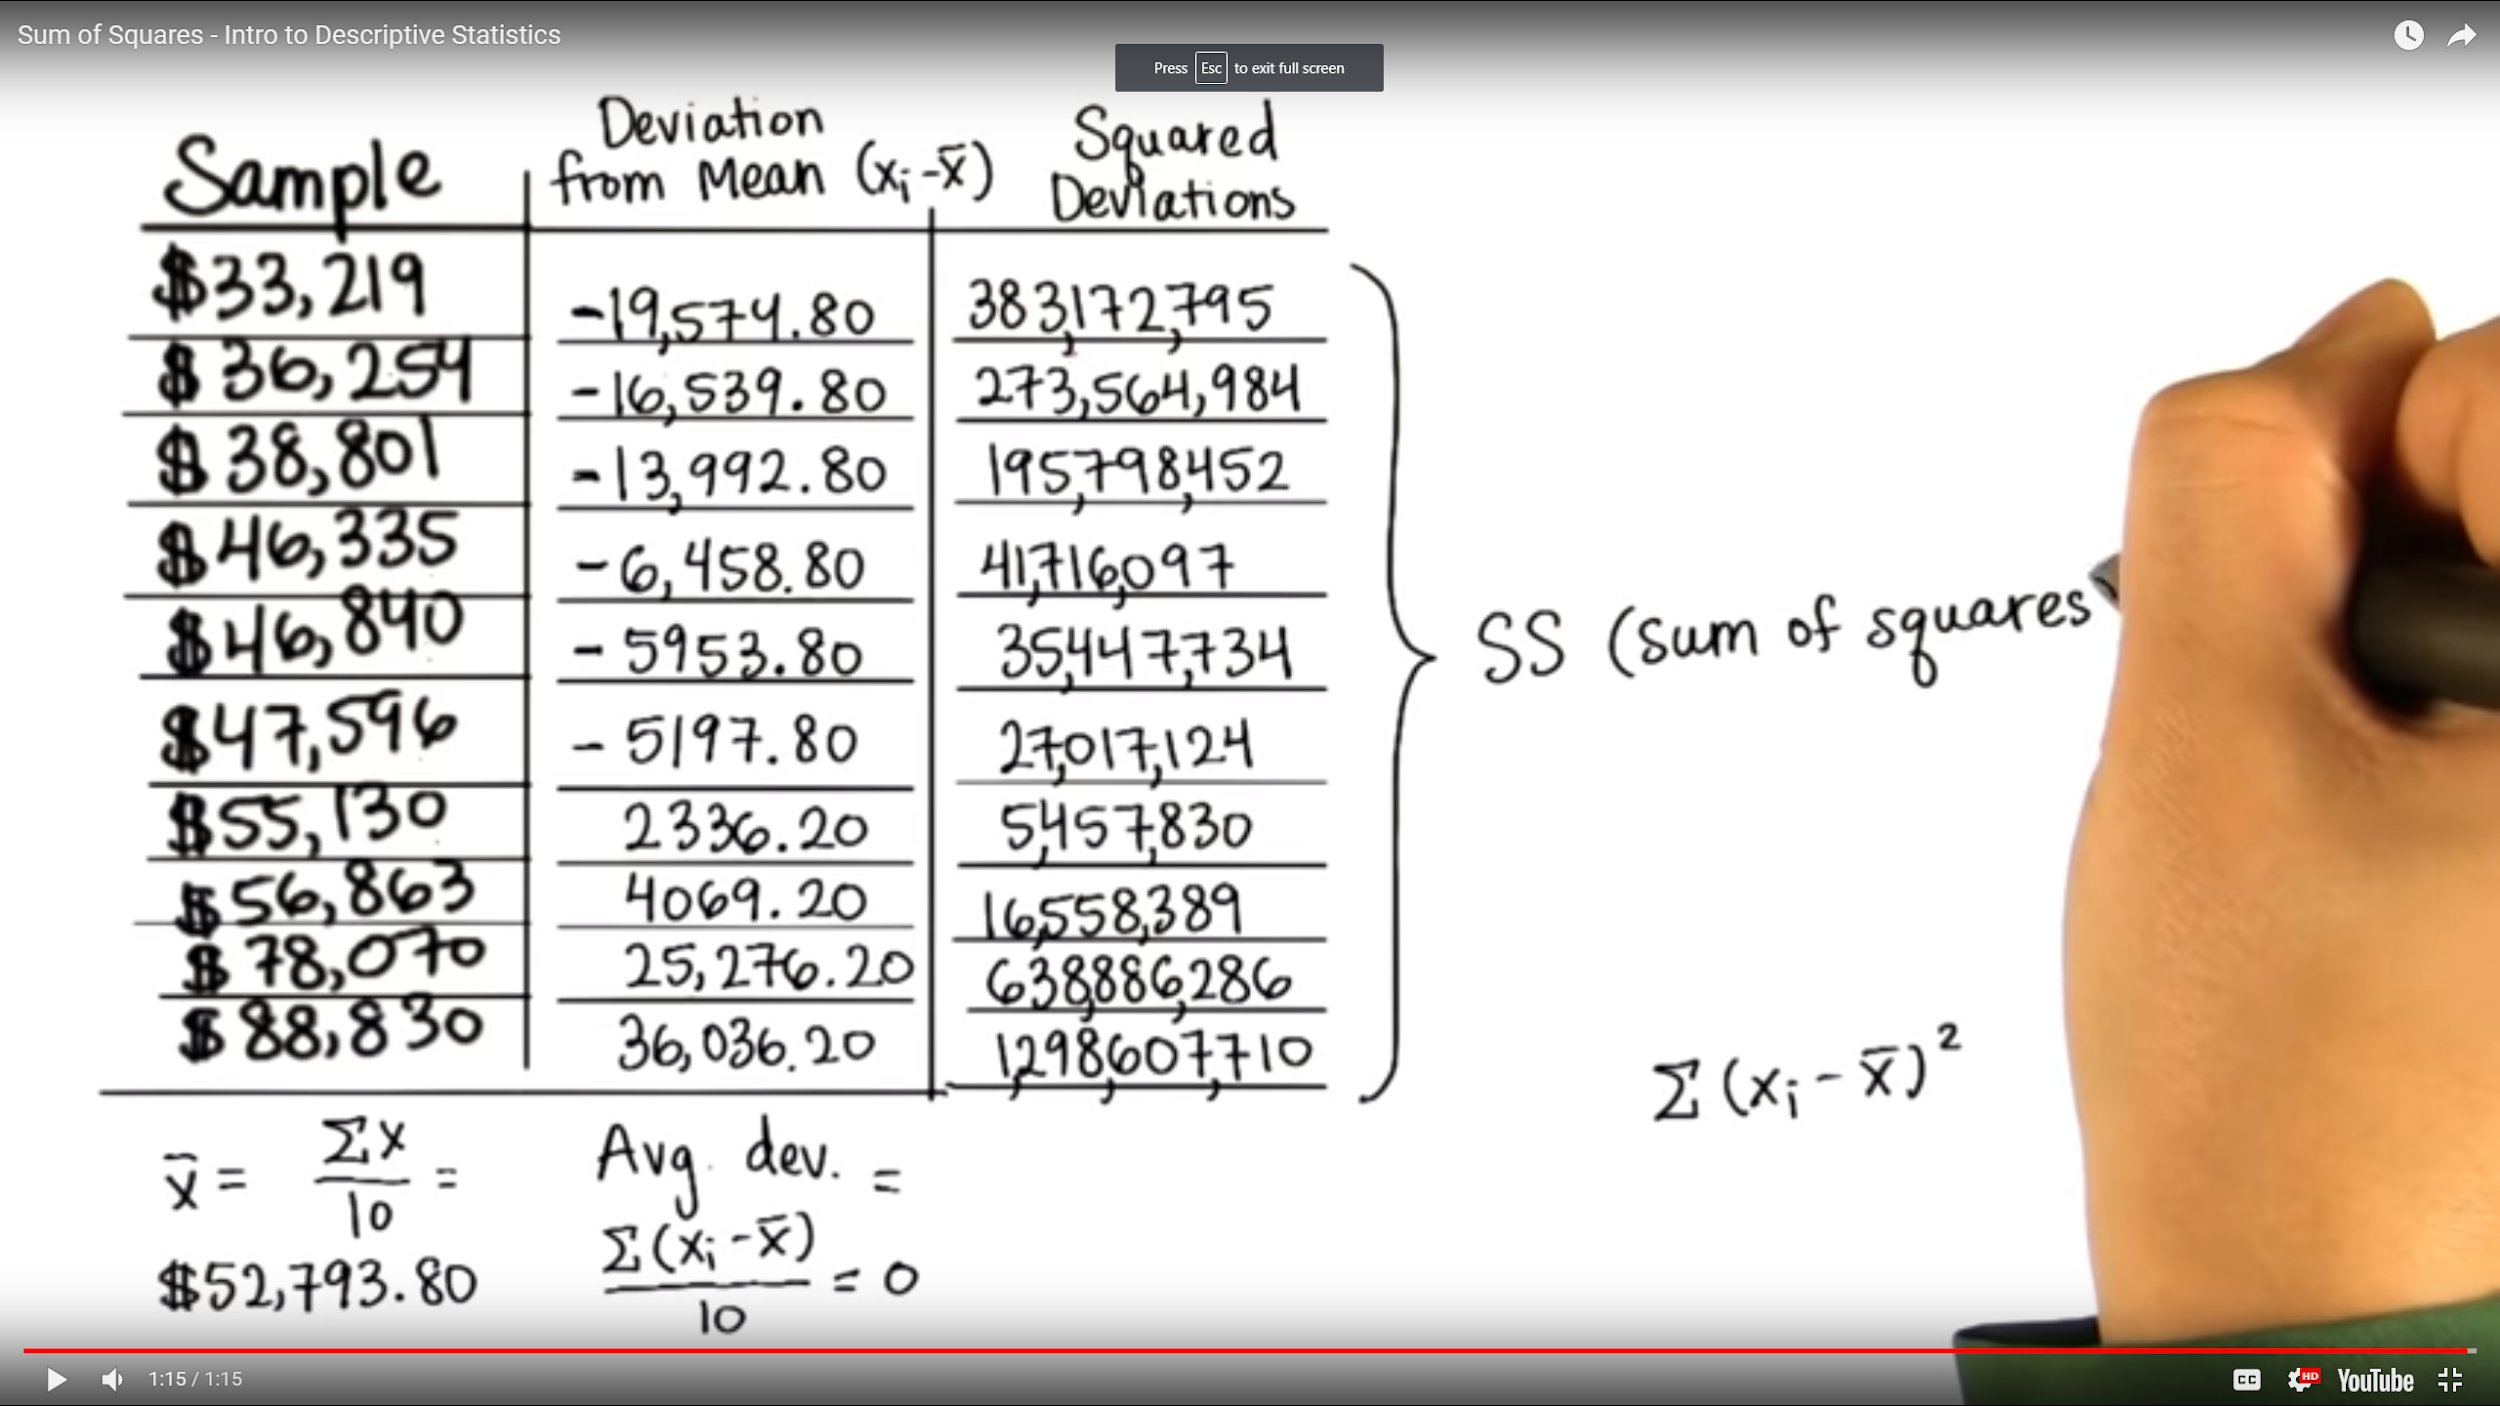 Sum of Squares - Intro to Descriptive Statistics
Press Esc to exit full screen
Sample
Deviation
from Mean (xᵢ-x̄)
Squared
Deviations
$33,219 -19,574.80 383,172,795
$36,254 -16,539.80 273,564,984
$38,801 -13,992.80 195,798,452
$46,335 -6,458.80 41,716,097
$46,840 -5953.80 35,447,734
$47,596 -5197.80 27,017,124
$55,130 2336.20 5,457,830
$56,863 4069.20 16,558,389
$78,070 25,276.20 638,886,286
$88,830 36,036.20 1,298,607,710
SS (sum of squares
Σ(xᵢ-x̄)²
x̄ = Σx/10 =
$52,793.80
Avg. dev. =
Σ(xᵢ-x̄)/10 = 0
1:15 / 1:15
CC
HD
YouTube